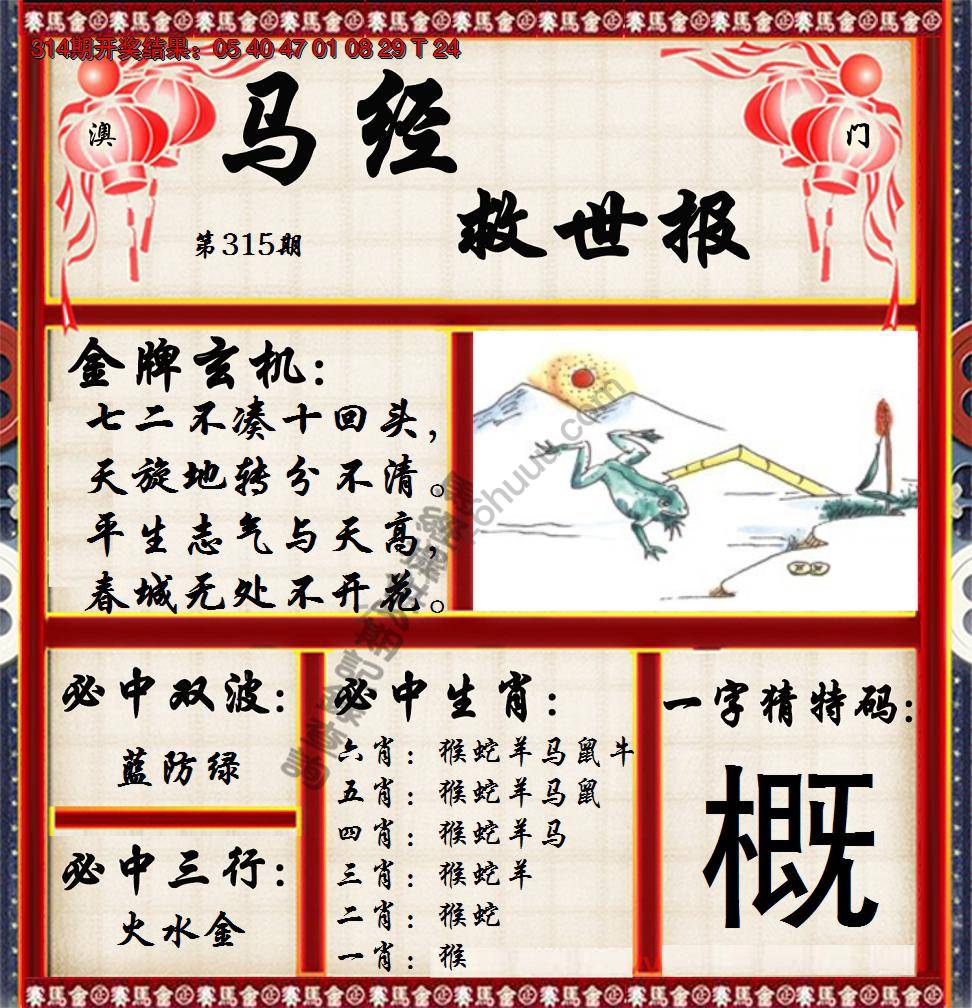 賽馬會
314期开奖结果：05 40 47 01 08 29 T 24
澳
门
马经
救世报
第315期
金牌玄机：
七二不凑十回头，
天旋地转分不清。
平生志气与天高，
春城无处不开花。
必中双波：
蓝防绿
必中三行：
火水金
必中生肖：
六肖：猴蛇羊马鼠牛
五肖：猴蛇羊马鼠
四肖：猴蛇羊马
三肖：猴蛇羊
二肖：猴蛇
一肖：猴
一字猜特码：
概
賽馬會